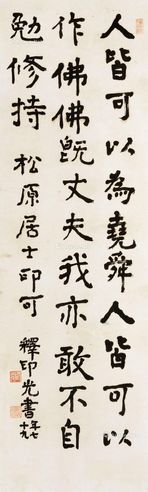 人皆可以為堯舜人皆可以
作佛佛既丈夫我亦敢不自
勉修持
松原居士印可
釋印光書
年七十九